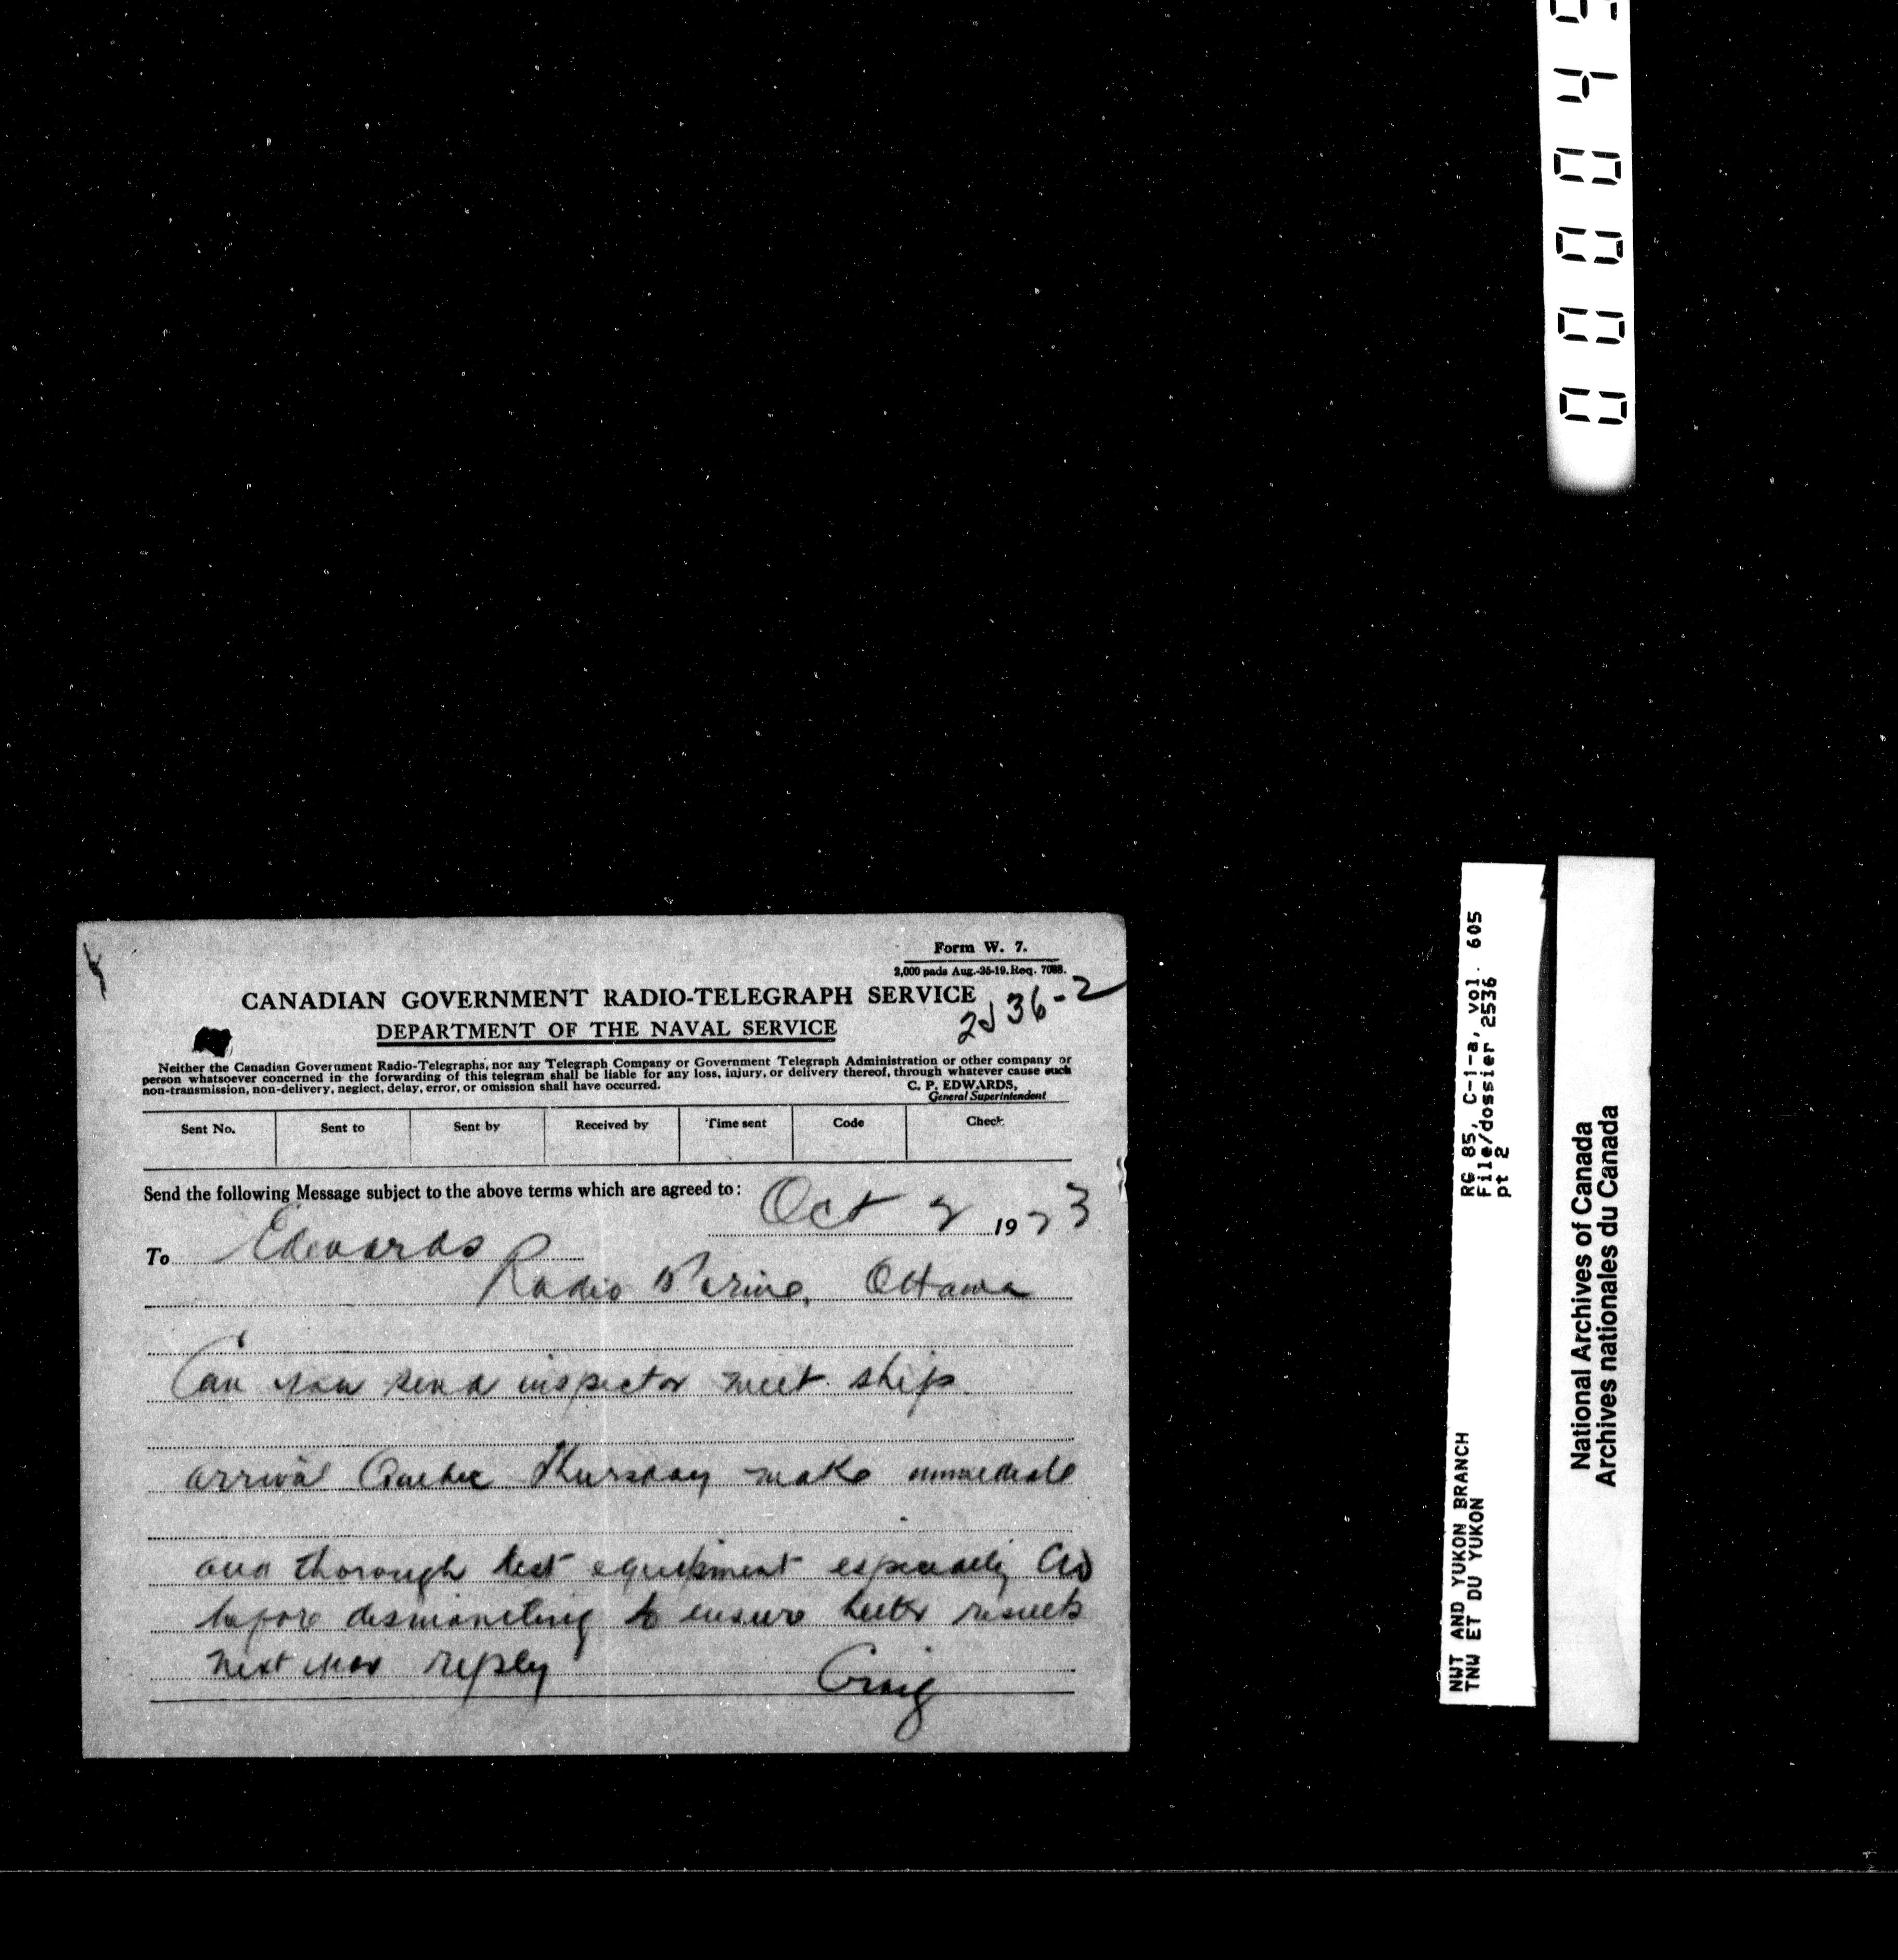 Form W. 7.
2,000 pads Aug.-25-19. Req. 7088.
CANADIAN GOVERNMENT RADIO-TELEGRAPH SERVICE
2536-2
DEPARTMENT OF THE NAVAL SERVICE
Neither the Canadian Government Radio-Telegraphs, nor any Telegraph Company or Government Telegraph Administration or other company or
person whatsoever concerned in the forwarding of this telegram shall be liable for any loss, injury, or delivery thereof, through whatever cause such
non-transmission, non-delivery, neglect, delay, error, or omission shall have occurred.
C. P. EDWARDS,
General Superintendent
Sent No. Sent to Sent by Received by Time sent Code Check
Send the following Message subject to the above terms which are agreed to:
Oct 2 1923
To Edwards
Radio Marine, Ottawa
Can you send inspector meet ship
arrival Quebec Thursday make immediate
and thorough test equipment especially CW
before dismantling to ensure better results
next year reply
Craig
000045
RG 85, C-1-a, vol. 605
File/dossier 2536
pt 2
NWT AND YUKON BRANCH
TNW ET DU YUKON
National Archives of Canada
Archives nationales du Canada